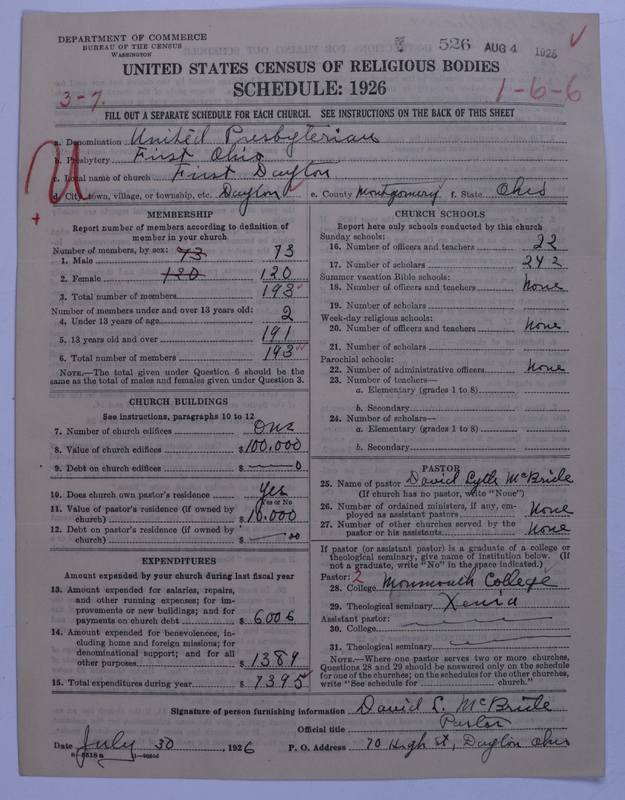 DEPARTMENT OF COMMERCE
BUREAU OF THE CENSUS
WASHINGTON
526 AUG 4 1926
UNITED STATES CENSUS OF RELIGIOUS BODIES
SCHEDULE: 1926
3-7.
1-6-6
FILL OUT A SEPARATE SCHEDULE FOR EACH CHURCH. SEE INSTRUCTIONS ON THE BACK OF THIS SHEET
a. Denomination United Presbyterian
b. Presbytery First Ohio
c. Local name of church First Dayton
d. City, town, village, or township, etc. Dayton e. County Montgomery f. State Ohio
MEMBERSHIP
Report number of members according to definition of
member in your church
Number of members, by sex:
1. Male 73 73
2. Female 120 120
3. Total number of members 193
Number of members under and over 13 years old:
4. Under 13 years of age 2
5. 13 years old and over 191
6. Total number of members 193
NOTE.—The total given under Question 6 should be
same as the total of males and females given under Question 3.
CHURCH BUILDINGS
See instructions, paragraphs 10 to 12
7. Number of church edifices One
8. Value of church edifices $100,000
9. Debt on church edifices $ 0
10. Does church own pastor's residence Yes
Yes or No
11. Value of pastor's residence (if owned by
church) $ 10.000
12. Debt on pastor's residence (if owned by
church) $ 00
EXPENDITURES
Amount expended by your church during last fiscal year
13. Amount expended for salaries, repairs,
and other running expenses; for im-
provements or new buildings; and for
payments on church debt $ 6006
14. Amount expended for benevolences, in-
cluding home and foreign missions; for
denominational support; and for all
other purposes $ 1389
15. Total expenditures during year $ 7395
CHURCH SCHOOLS
Report here only schools conducted by this church
Sunday schools:
16. Number of officers and teachers 22
17. Number of scholars 242
Summer vacation Bible schools:
18. Number of officers and teachers None
19. Number of scholars
Week-day religious schools:
20. Number of officers and teachers None
21. Number of scholars
Parochial schools:
22. Number of administrative officers None
23. Number of teachers—
a. Elementary (grades 1 to 8)
b. Secondary
24. Number of scholars—
a. Elementary (grades 1 to 8)
b. Secondary
PASTOR
25. Name of pastor David Lytle McBride
(If church has no pastor, write "None")
26. Number of ordained ministers, if any, em-
ployed as assistant pastors None
27. Number of other churches served by the
pastor or his assistants None
If pastor (or assistant pastor) is a graduate of a college or
theological seminary, give name of institution below. (If
not a graduate, write "No" in the space indicated.)
Pastor: 2
28. College Monmouth College
29. Theological seminary Xenia
Assistant pastor:
30. College
31. Theological seminary
NOTE.—Where one pastor serves two or more churches,
Questions 28 and 29 should be answered only on the schedule
for one of the churches; on the schedules for the other churches,
write "See schedule for church."
Signature of person furnishing information David L. McBride
Official title Pastor
Date July 30, 1926 P. O. Address 70 High St, Dayton Ohio